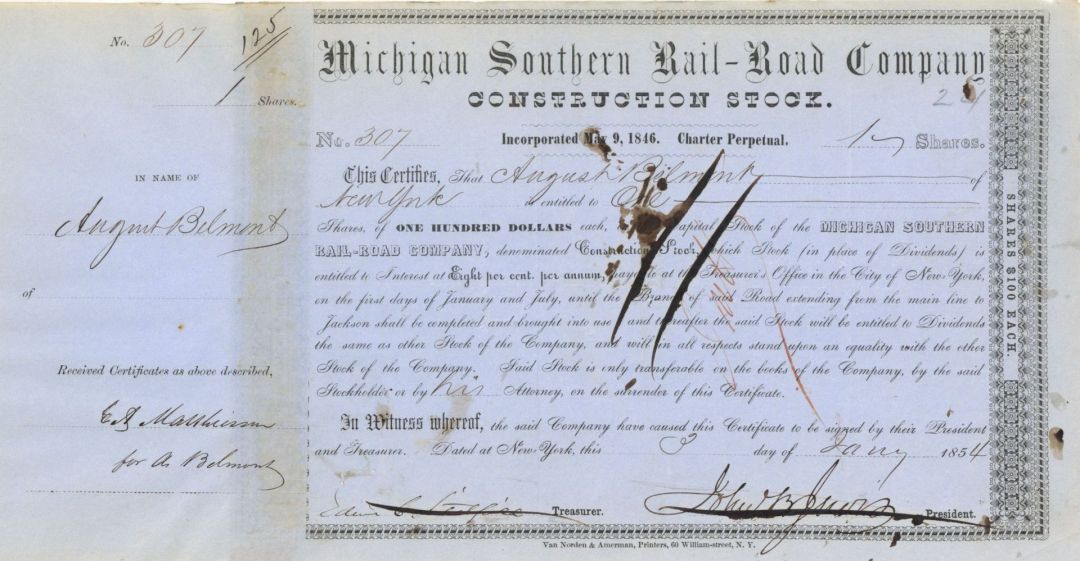 No. 307
125
1 Shares.
IN NAME OF
August Belmont
of
Received Certificates as above described,
for A Belmont
Michigan Southern Rail-Road Company
CONSTRUCTION STOCK.
24
No. 307 Incorporated May 9, 1846. Charter Perpetual. 1 Shares.
This Certifies, That August Belmont of
New York is entitled to One
Shares, of ONE HUNDRED DOLLARS each, Capital Stock of the MICHIGAN SOUTHERN
RAIL-ROAD COMPANY, denominated Construction Stock, which Stock (in place of Dividends) is
entitled to Interest at Eight per cent. per annum, payable at the Treasurer's Office in the City of New-York,
on the first days of January and July, until the Branch of said Road extending from the main line to
Jackson shall be completed and brought into use and thereafter the said Stock will be entitled to Dividends
the same as other Stock of the Company, and will in all respects stand upon an equality with the other
Stock of the Company. Said Stock is only transferable on the books of the Company, by the said
Stockholder or by his Attorney, on the surrender of this Certificate.
In Witness whereof, the said Company have caused this Certificate to be signed by their President
and Treasurer. Dated at New-York, this 3 day of Jany 1854
Edwin C. Treasurer. John B Jervis President.
SHARES $100 EACH.
Van Norden & Amerman, Printers, 60 William-street, N. Y.